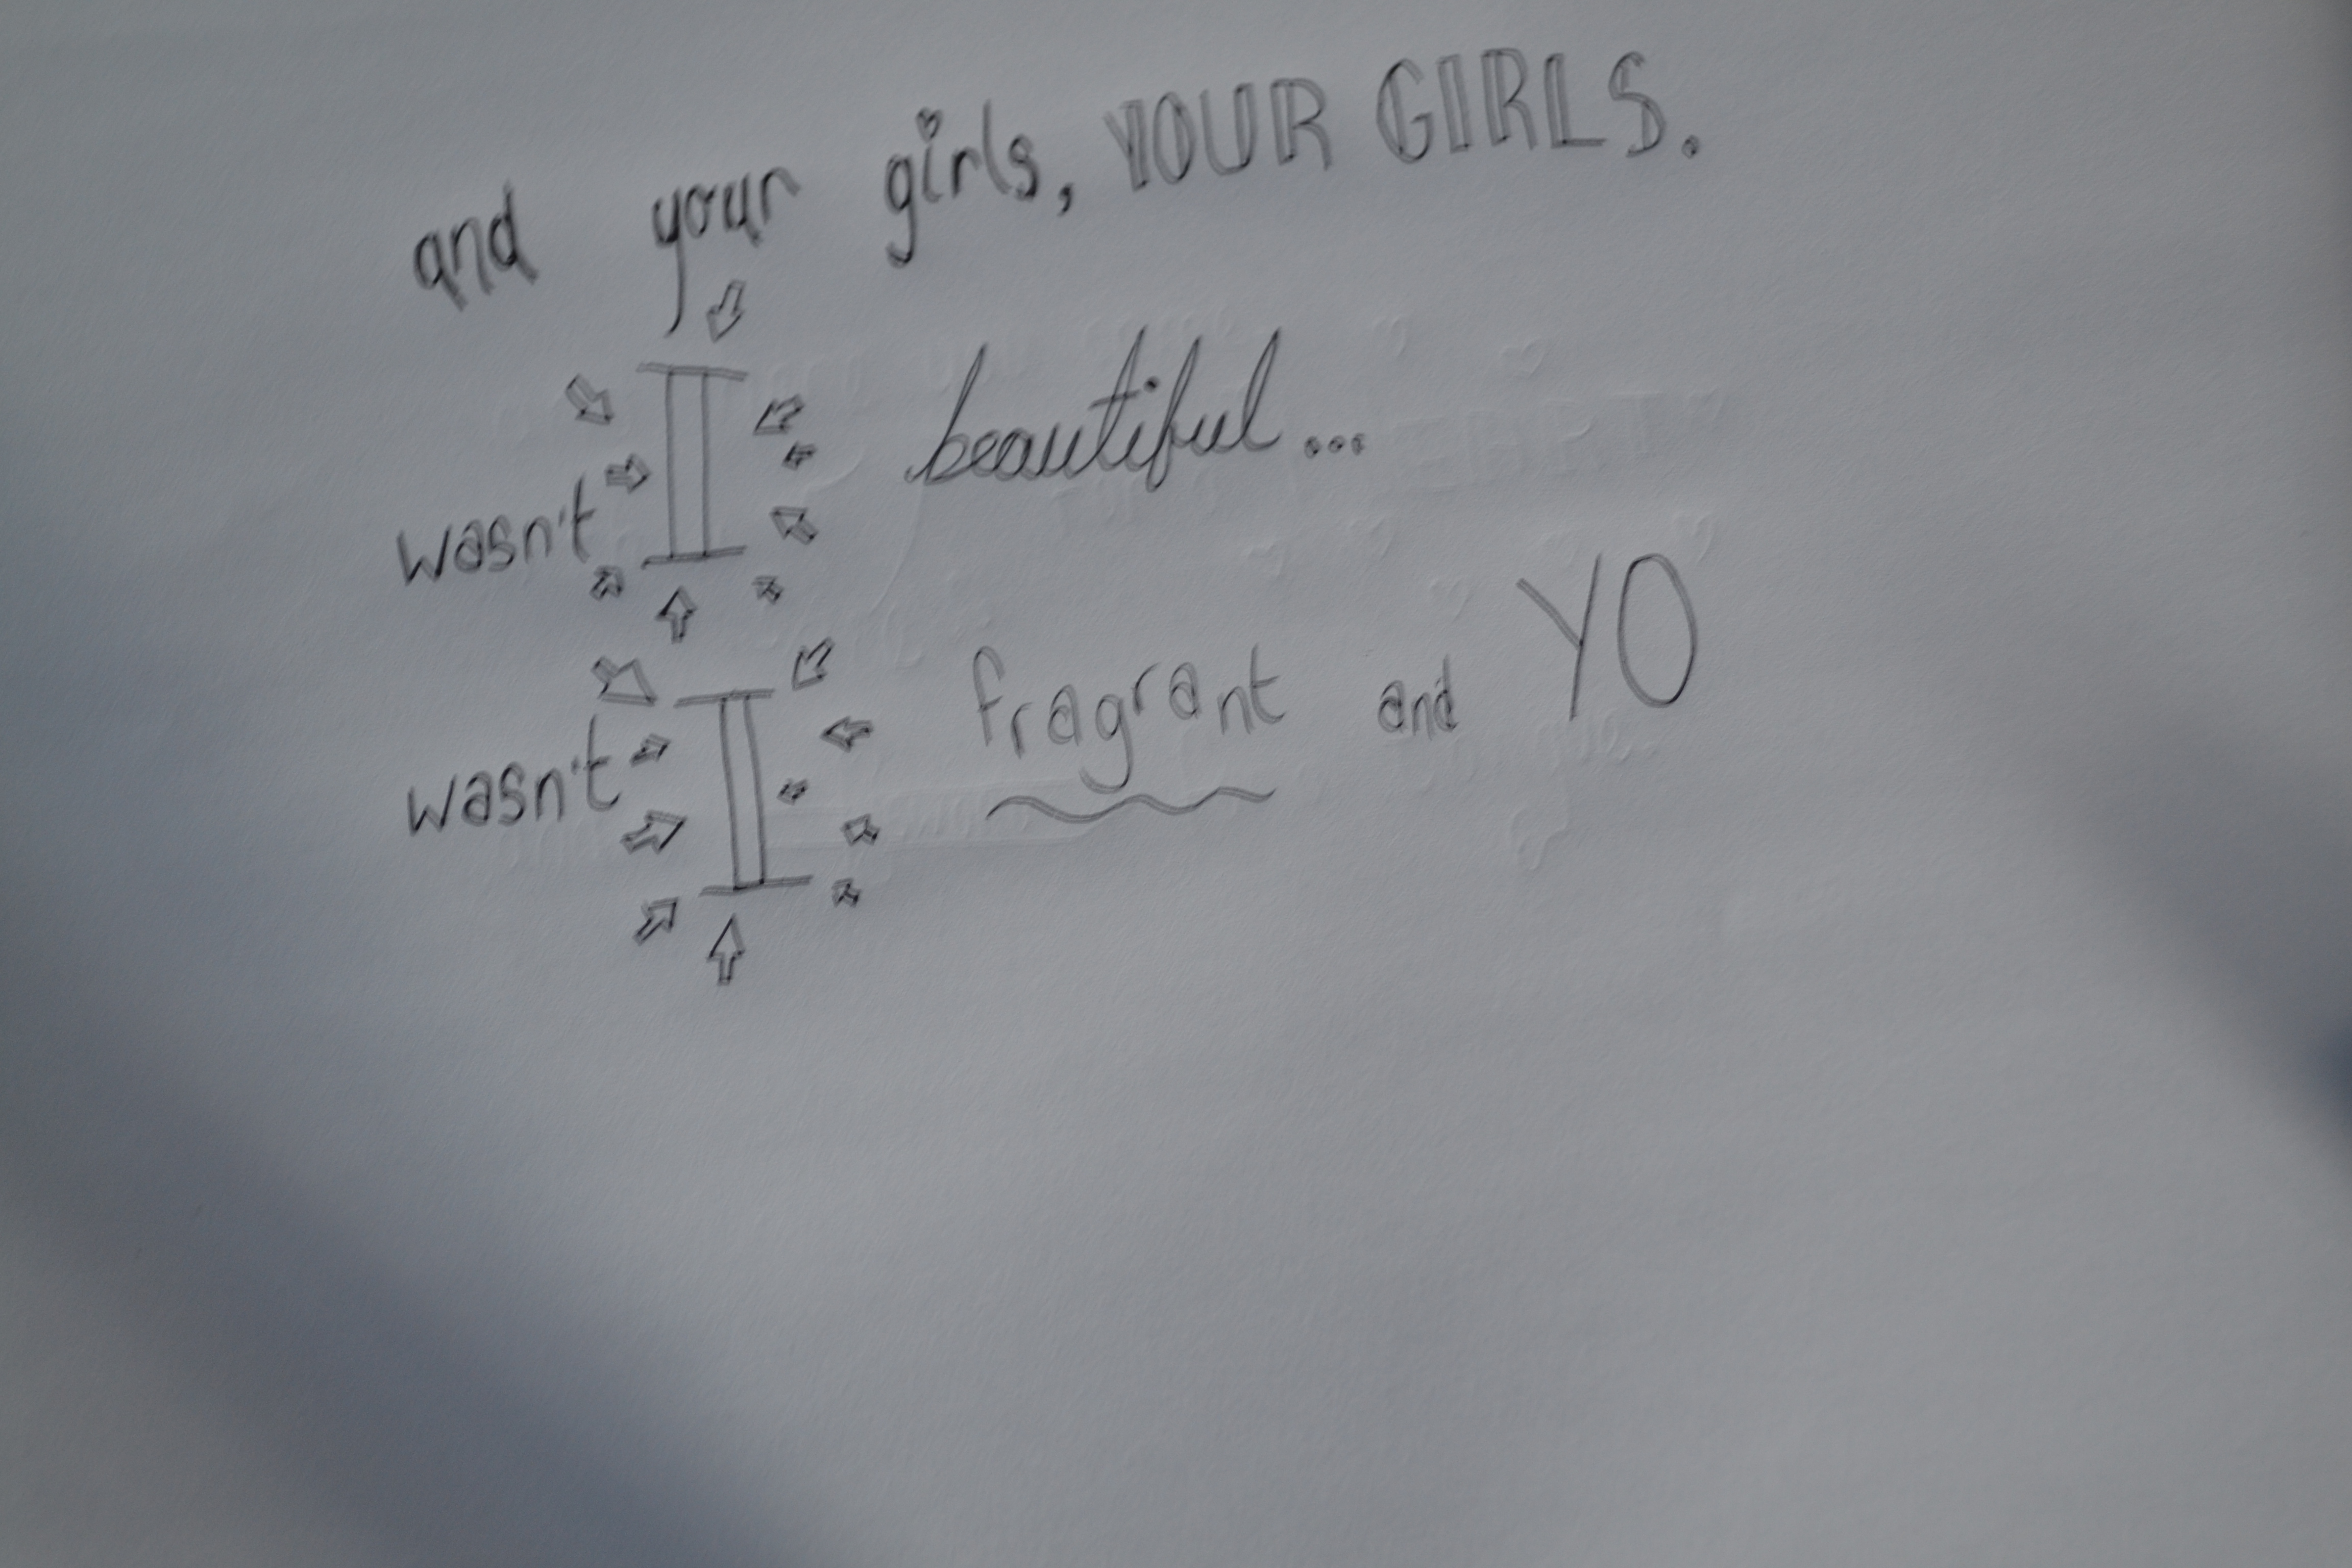 and your girls, YOUR GIRLS.
wasn't I beautiful...
wasn't I fragrant and YO